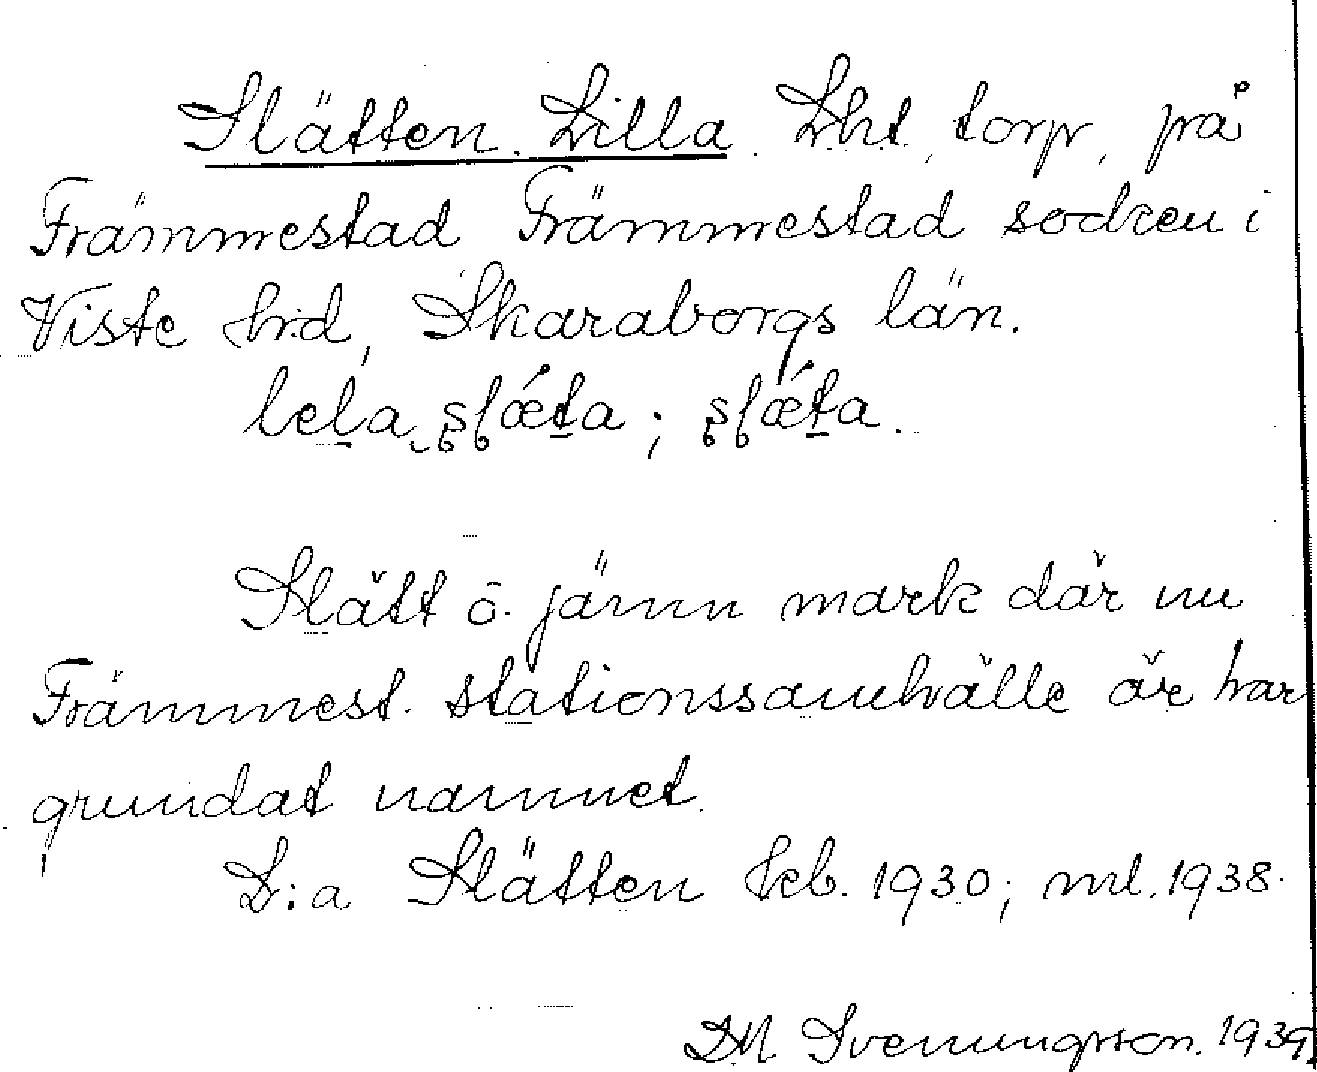 Slätten. Lilla. Lht, torp, på
Främmestad Främmestad socken i
Viste hrd, Skaraborgs län.
lela slǽta; slǽta.
Slätt o. jämn mark där nu
Främmest. stationssamhälle är har
grundat namnet.
L:a Slätten kb. 1930; ml. 1938.
D.M. Svenungsson. 1939.